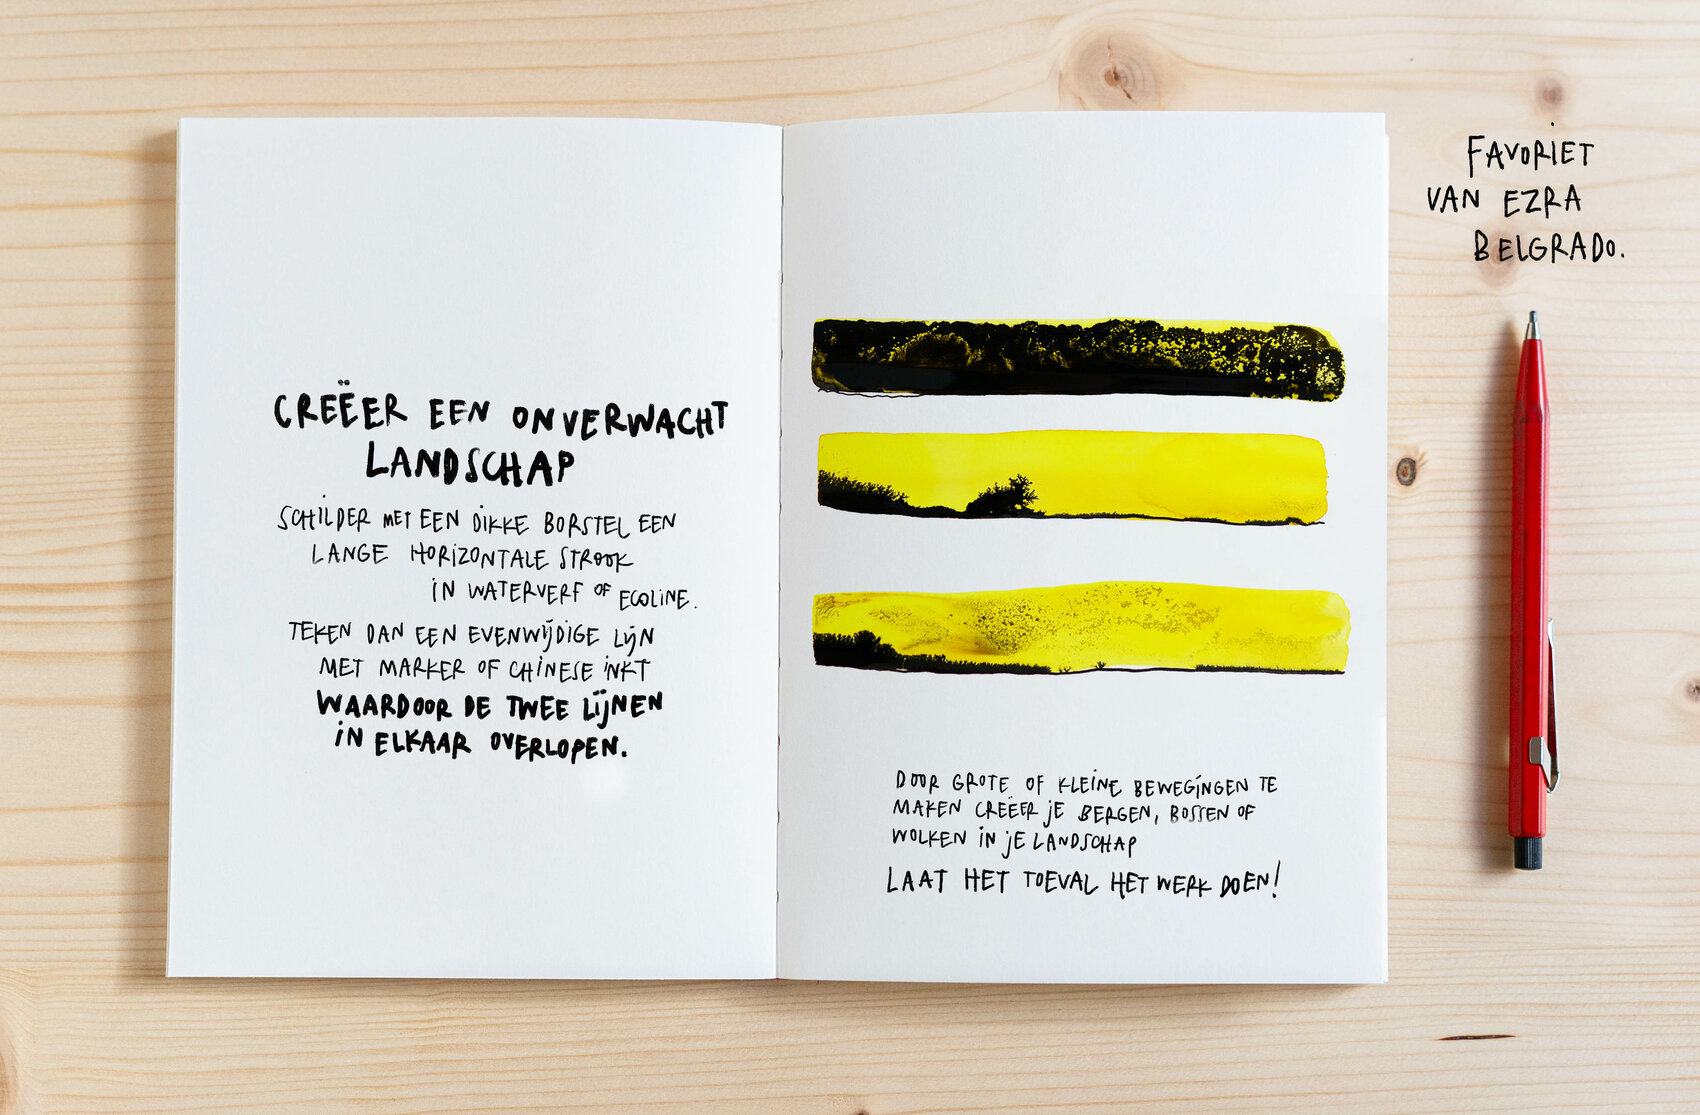 CREËER EEN ONVERWACHT
LANDSCHAP
SCHILDER MET EEN DIKKE BORSTEL EEN
LANGE HORIZONTALE STROOK
IN WATERVERF OF ECOLINE.
TEKEN DAN EEN EVENWIJDIGE LIJN
MET MARKER OF CHINESE INKT
WAARDOOR DE TWEE LIJNEN
IN ELKAAR OVERLOPEN.
DOOR GROTE OF KLEINE BEWEGINGEN TE
MAKEN CREËER JE BERGEN, BOSSEN OF
WOLKEN IN JE LANDSCHAP
LAAT HET TOEVAL HET WERK DOEN!
FAVORIET
VAN EZRA
BELGRADO.